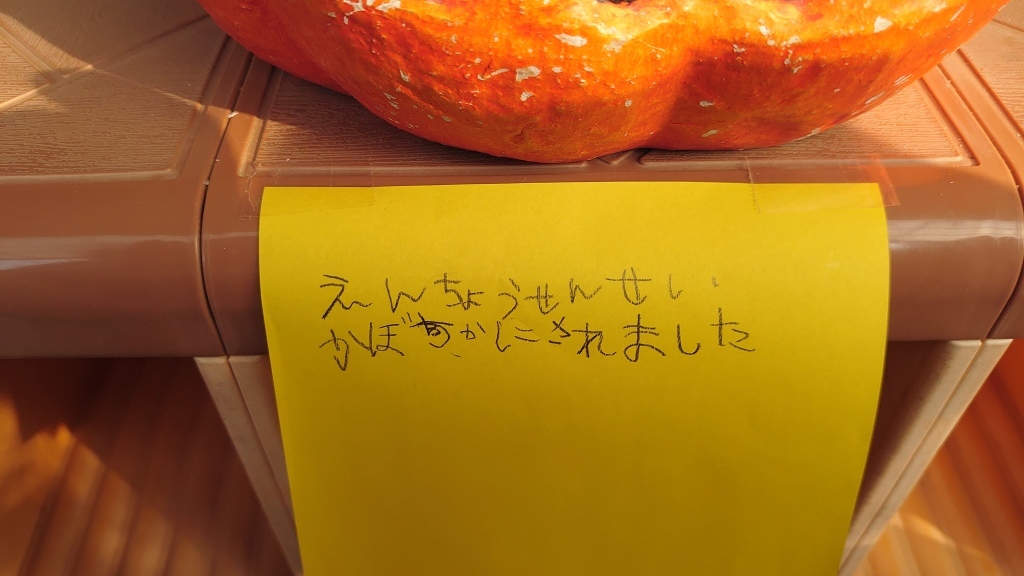 えんちょうせんせい
かぼちゃかしにされました